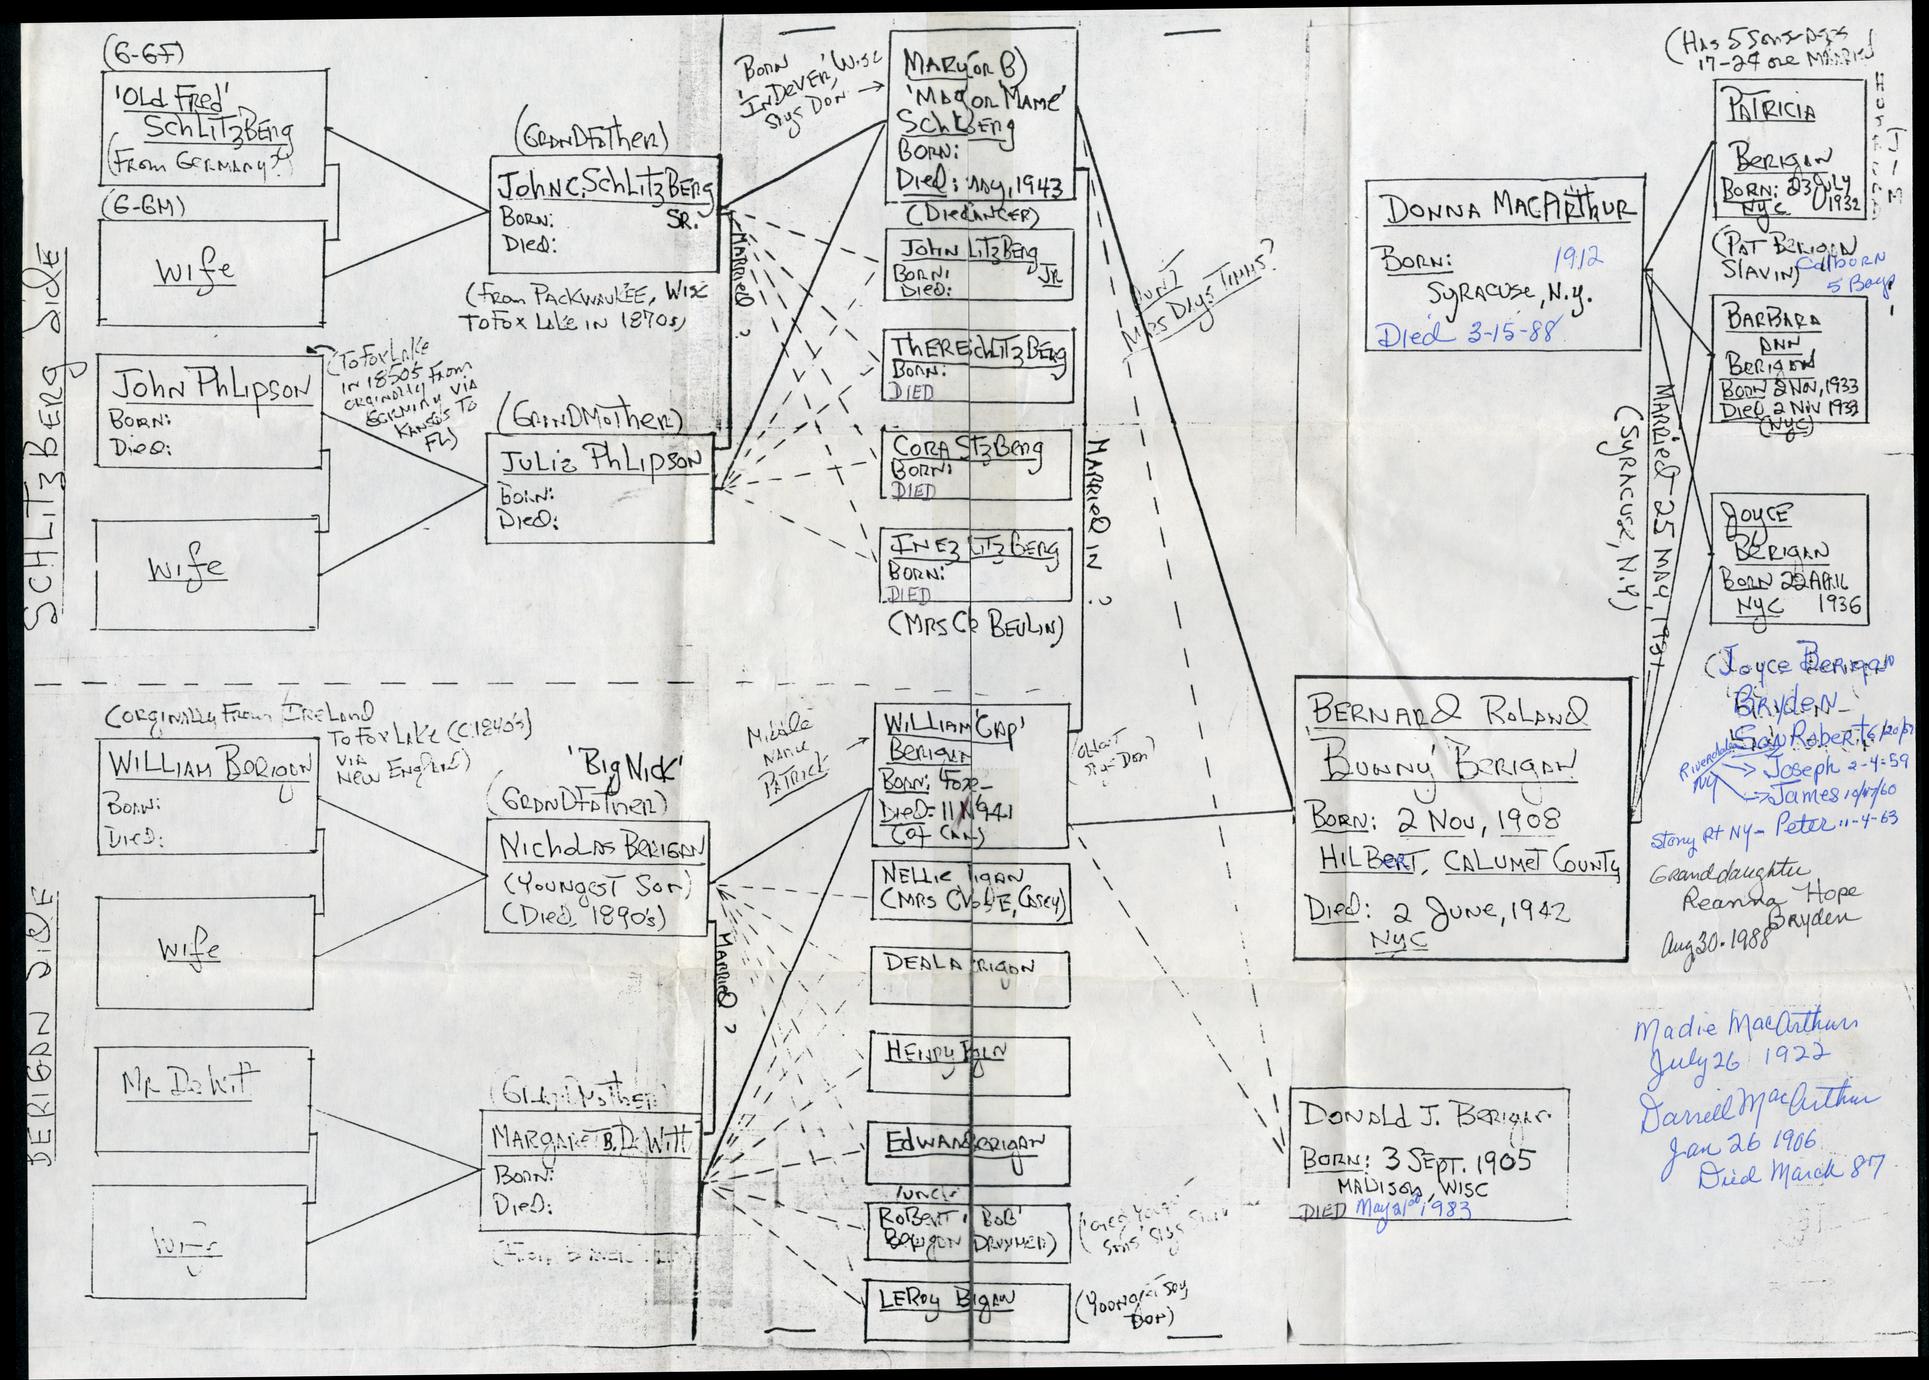 (G-GF)
'Old Fred'
SCHLITZBERG
(FROM GERMANY?)
(G-GM)
Wife
SCHLITZBERG SIDE
JOHN PHLIPSON
BORN:
DIED:
(TO FOX LAKE
IN 1850S
ORGINALLY FROM
GERMNY VIA
KANSAS TO
FL)
Wife
(GRANDFATHER)
JOHN C. SCHLITZBERG
SR.
BORN:
DIED:
(FROM PACKWAUKEE, WISC
TO FOX LAKE IN 1870s)
MARRIED ?
(GRANDMOTHER)
JULIA PHLIPSON
BORN:
DIED:
BORN
'INDEVER,' WISC
SAYS DON
MARY (OR B)
'MAY OR 'MAME'
SCHLBERG
BORN:
DIED: MAY, 1943
(DIED ANCER)
JOHN LITZBERG
JR
BORN:
DIED:
THERE SCHLITZBERG
BORN:
DIED
CORA STZBERG
BORN:
DIED
INEZ LITZBERG
BORN:
DIED
(MRS BEULIN)
MARRIED IN ?
MRS DAYS TIMMS?
DONNA MACARTHUR
BORN: 1912
SYRACUSE, N.Y.
Died 3-15-88
MARRIED 25 MAY, 1931
(SYRACUSE, N.Y)
(HAS 5 SONS AGES
17-24 ONE MARRIED
PATRICIA
BERIGAN
BORN: 23 JULY
NYC 1932
(PAT BERIGAN
SLAVIN) Calborn
5 Boys
BARBARA
ANN
BERIGAN
BORN 2 NOV, 1933
DIED 2 NOV 1933
(NYC)
JOYCE
BERIGAN
BORN 22 APRIL
NYC 1936
(Joyce Berigan
Bryden
Son Robert 6/20/57
Riverdale
NY
Joseph 2-4-59
James 10/17/60
Stony Pt NY - Peter 11-4-63
Granddaughter
Reanna Hope
Bryden
Aug 30. 1988
Madie MacArthur
July 26 1922
Darrell MacArthur
Jan 26 1906
Died March 87
BERIGAN SIDE
(ORGINALLY FROM IRELAND
TO FOX LAKE (C. 1840's)
VIA
NEW ENGLAND)
WILLIAM BERIGAN
BORN:
DIED:
Wife
MR DEWITT
Wife
'BIG NICK'
(GRANDFATHER)
NICHOLAS BERIGAN
(YOUNGEST SON)
(DIED, 1890's)
MARRIED ?
MARGARET B. DEWITT
BORN:
DIED:
MIDDLE
NAME
PATRICK
WILLIAM 'CAP'
BERIGAN
BORN: FOX
DIED: 11 1941
NELLIE IGAN
(MRS CASEY)
DEALA RIGAN
HENRY
EDWARD BERIGAN
(UNCLE
ROBERT 'BOB'
BERIGAN DRUMMER)
LEROY BIGAN
(YOUNGEST SAY
DON)
BERNARD ROLAND
'BUNNY' BERIGAN
BORN: 2 NOV, 1908
HILBERT, CALUMET COUNTY
DIED: 2 JUNE, 1942
NYC
DONALD J. BERIGAN
BORN: 3 SEPT. 1905
MADISON, WISC
DIED May 21st 1983